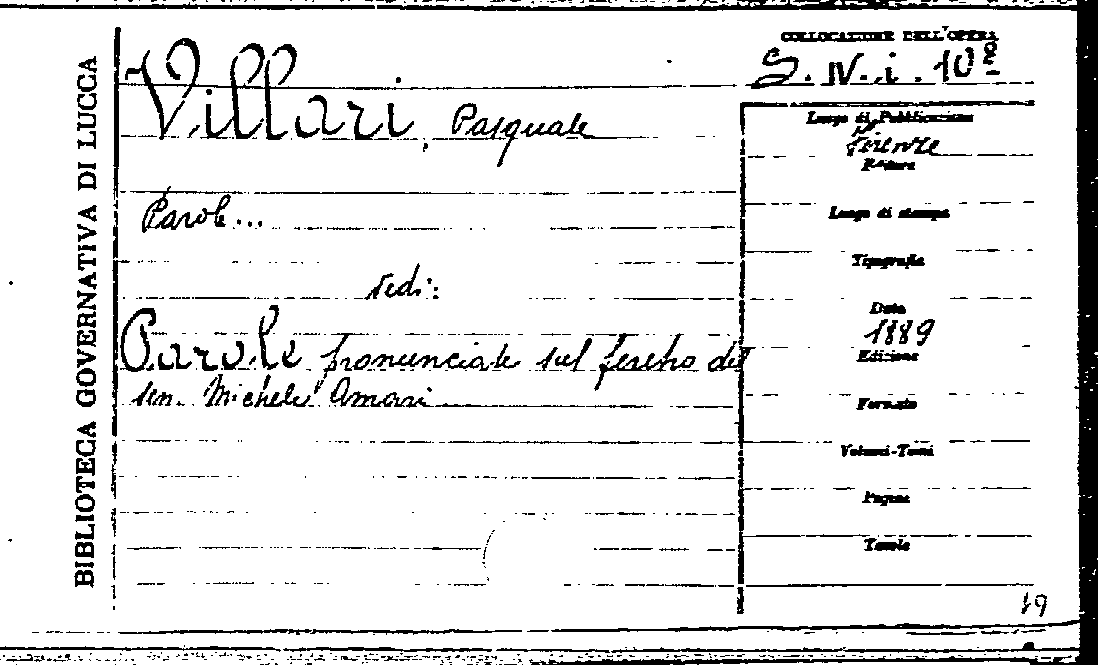 BIBLIOTECA GOVERNATIVA DI LUCCA
COLLOCAZIONE DELL'OPERA
S. IV. i. 10⁸
Villari, Pasquale
Parole...
vedi:
Parole pronunciate sul feretro del
sen. Michele Amari
Luogo di Pubblicazione
Firenze
Editore
Luogo di stampa
Tipografia
Data
1889
Edizione
Formato
Volumi-Tomi
Pagine
Tavole
19